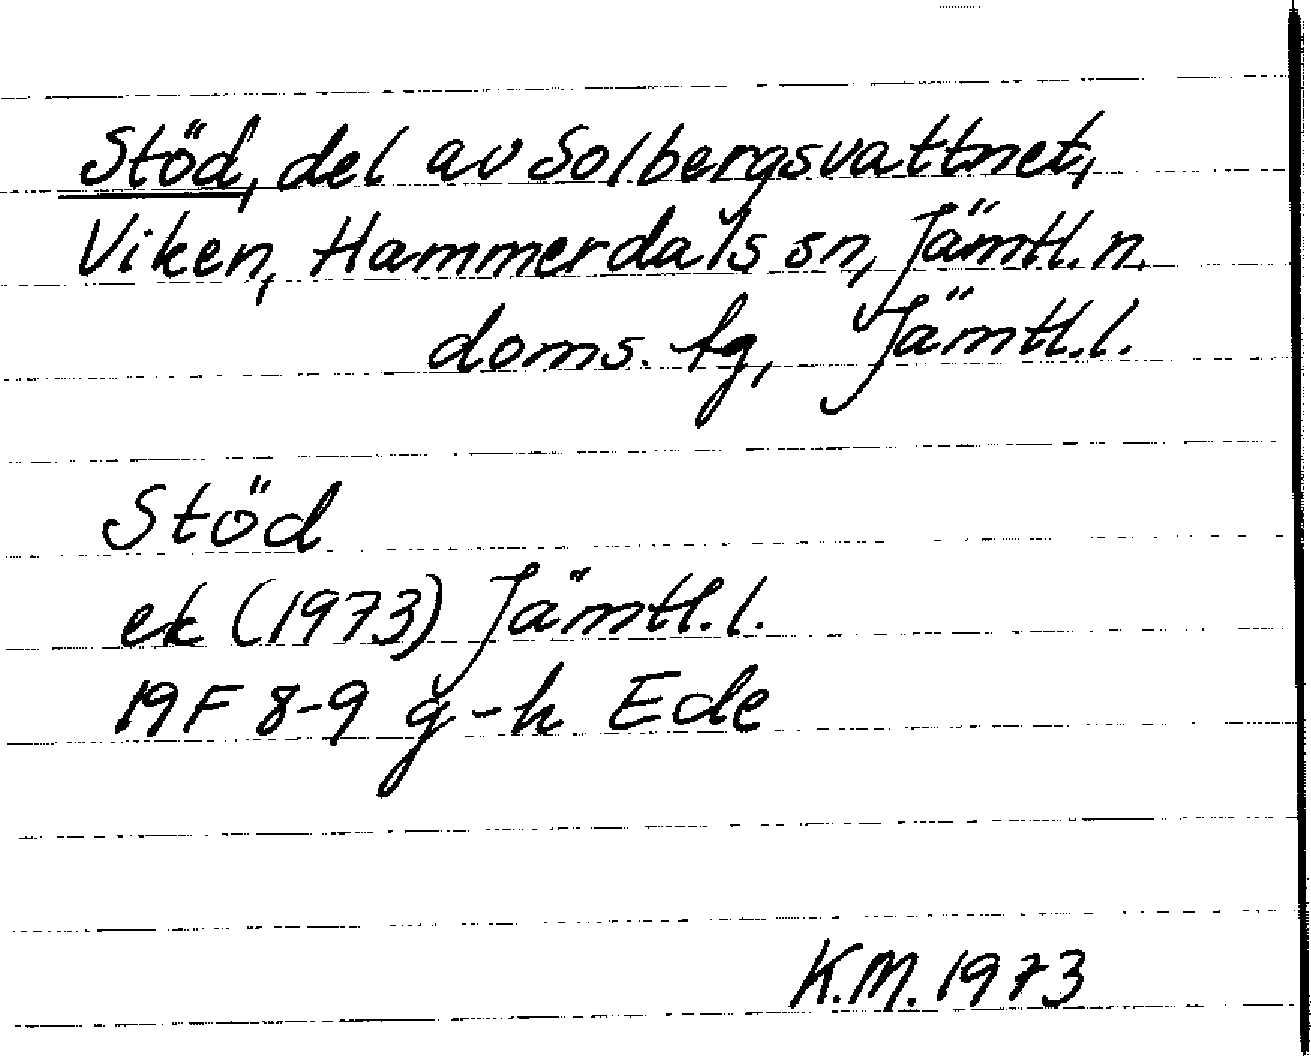 Stöd, del av Solbergsvattnet,
Viken, Hammerdals sn, Jämtl. n.
doms. tg, Jämtl. l.
Stöd
ek (1973) Jämtl. l.
19F 8-9 g-h Ede
K.M. 1973